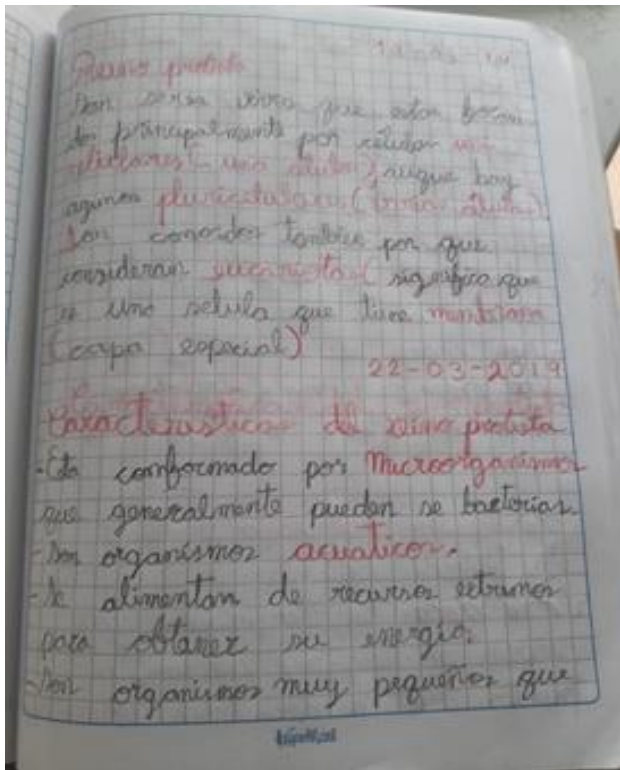 Reino protista
Son seres vivos que estan forma
dos principalmente por celulas uni
celulares (una celula), auque hay
algunos pluricelulares (varias celulas)
Son conosidos tambien por que
consideran eucariota (significa que
es una selula que tiene membrana
(capa especial)
22-03-2019
Caracteristicas del reino protista
-Esta comformado por Microorganismos
que generalmente pueden se bacterias.
-Son organismos acuaticos.
-Se alimentan de recursos extrernos
para obtener su energia.
-Son organismos muy pequeños que